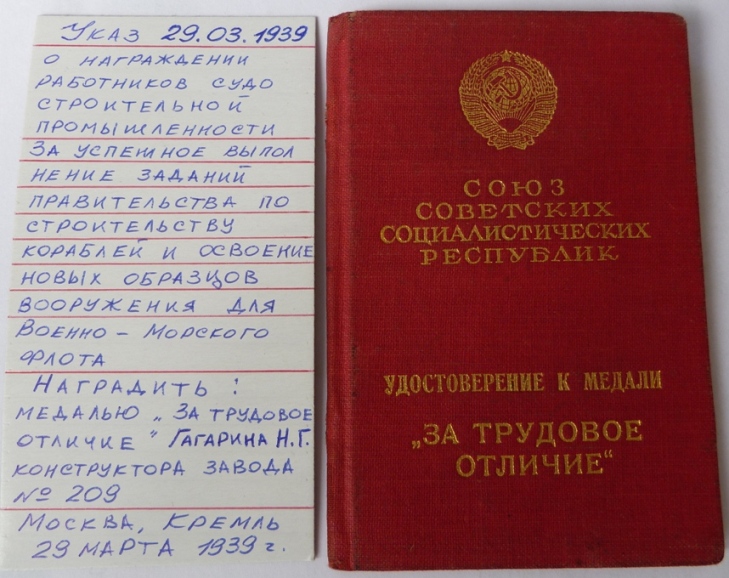 Указ 29.03.1939
о награждении
работников судо
строительной
промышленности
За успешное выпол
нение заданий
правительства по
строительству
кораблей и освоение
новых образцов
вооружения для
Военно - Морского
флота
Наградить :
медалью „За трудовое
отличие" Гагарина Н.Г.
конструктора завода
№ 209
Москва, Кремль
29 марта 1939 г.
СОЮЗ
СОВЕТСКИХ
СОЦИАЛИСТИЧЕСКИХ
РЕСПУБЛИК
УДОСТОВЕРЕНИЕ К МЕДАЛИ
„ЗА ТРУДОВОЕ
ОТЛИЧИЕ"